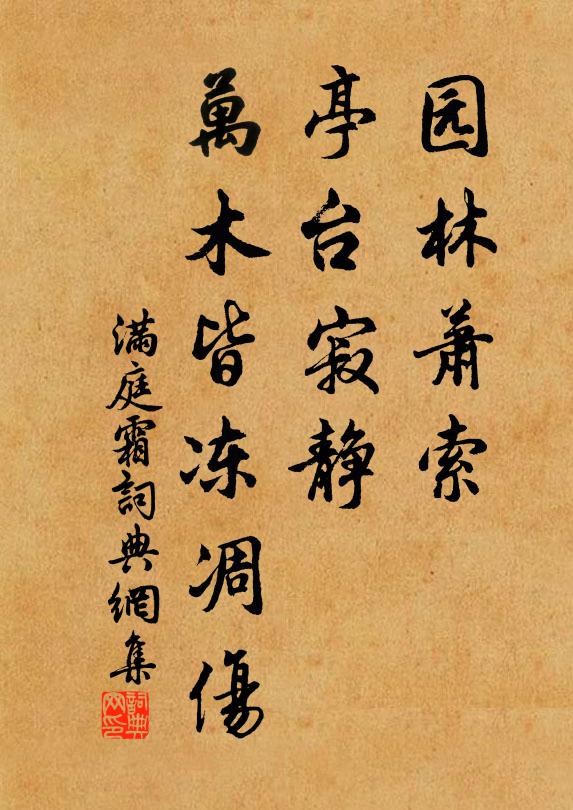 园林萧索
亭台寂静
萬木皆冻凋傷
满庭霜詞典網集
詞典
网印